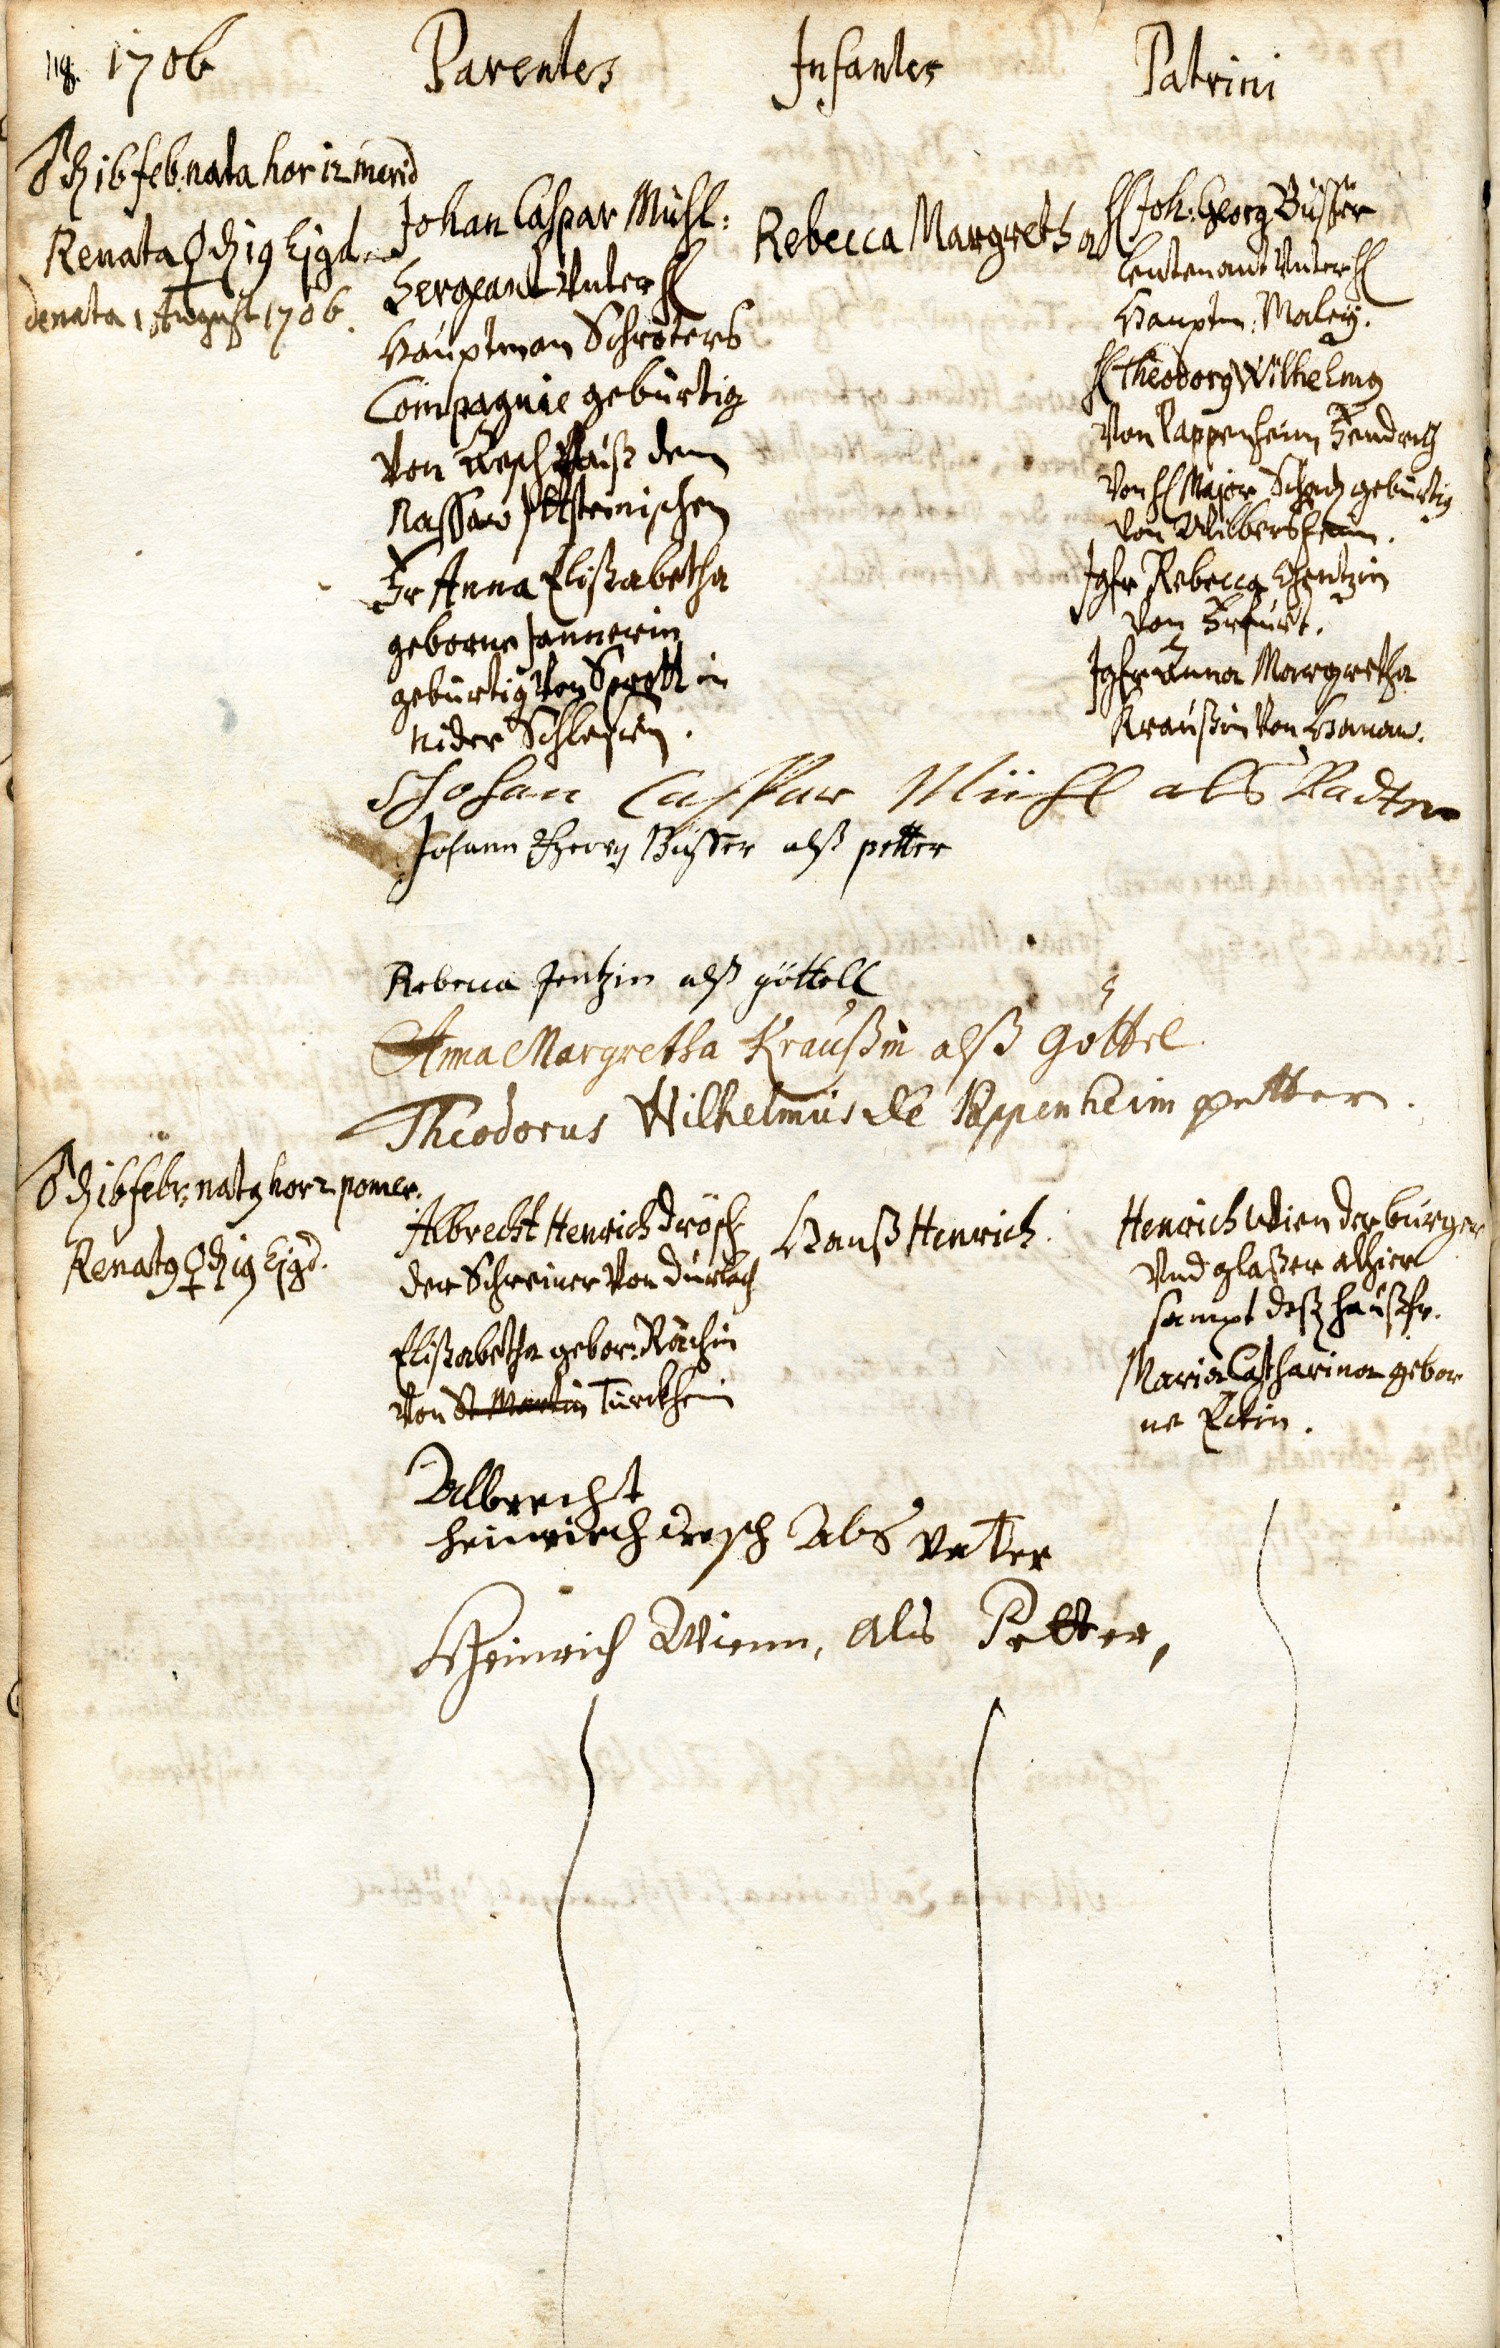 118. 1706 Parentes Infantes Patrini
♂ d 16 feb. nata hor 12 merid
Renata ♀ d 19 Ejgd.
denata 1 August 1706.
Johan Caspar Mühl:
Sergeant Unter H
Hauptman Schröters
Compagnie gebürtig
von auß dem
Nassaw Ittsteinischen
Fr Anna Elißabetha
geborne Jannerin
gebürtig von Sprott in
nider Schlesien.
Rebecca Margretha
H Joh: Georg Büsser
Leutenant Unter H
Hauptm: Maley.
H Theodorg Wilhelmg
von Pappenheim, Fendrich
von H Major Schad gebürtig
von
Jgfr Rebecca Jentzin
von Erfürt.
Jgfr Anna Margretha
Kraußin von Hanaw.
Johan Casspar Mühl als Vadter
Johann Georg Büsser alß petter
Rebecca Jentzin alß göttell
Anna Margretha Kraußin alß Göttel
Theodorus Wilhelmus de Pappenheim petter.
♂ d 16 febr. natg hor 2 pomer.
Renatg ♀ d 19 Ejgd.
Albrecht Henrich Drösch
der Schreiner von Durlach
Elißabetha gebor: Rächin
von St Martin Türckheim
Hanß Henrich.
Henrich Wien der burger
Und glaßer alhier
sampt deß haußfr.
Maria Catharina gebor
ne Eckin.
Albrecht
heinrich dresch Als vatter
Heinrich Wienn, als Petter,